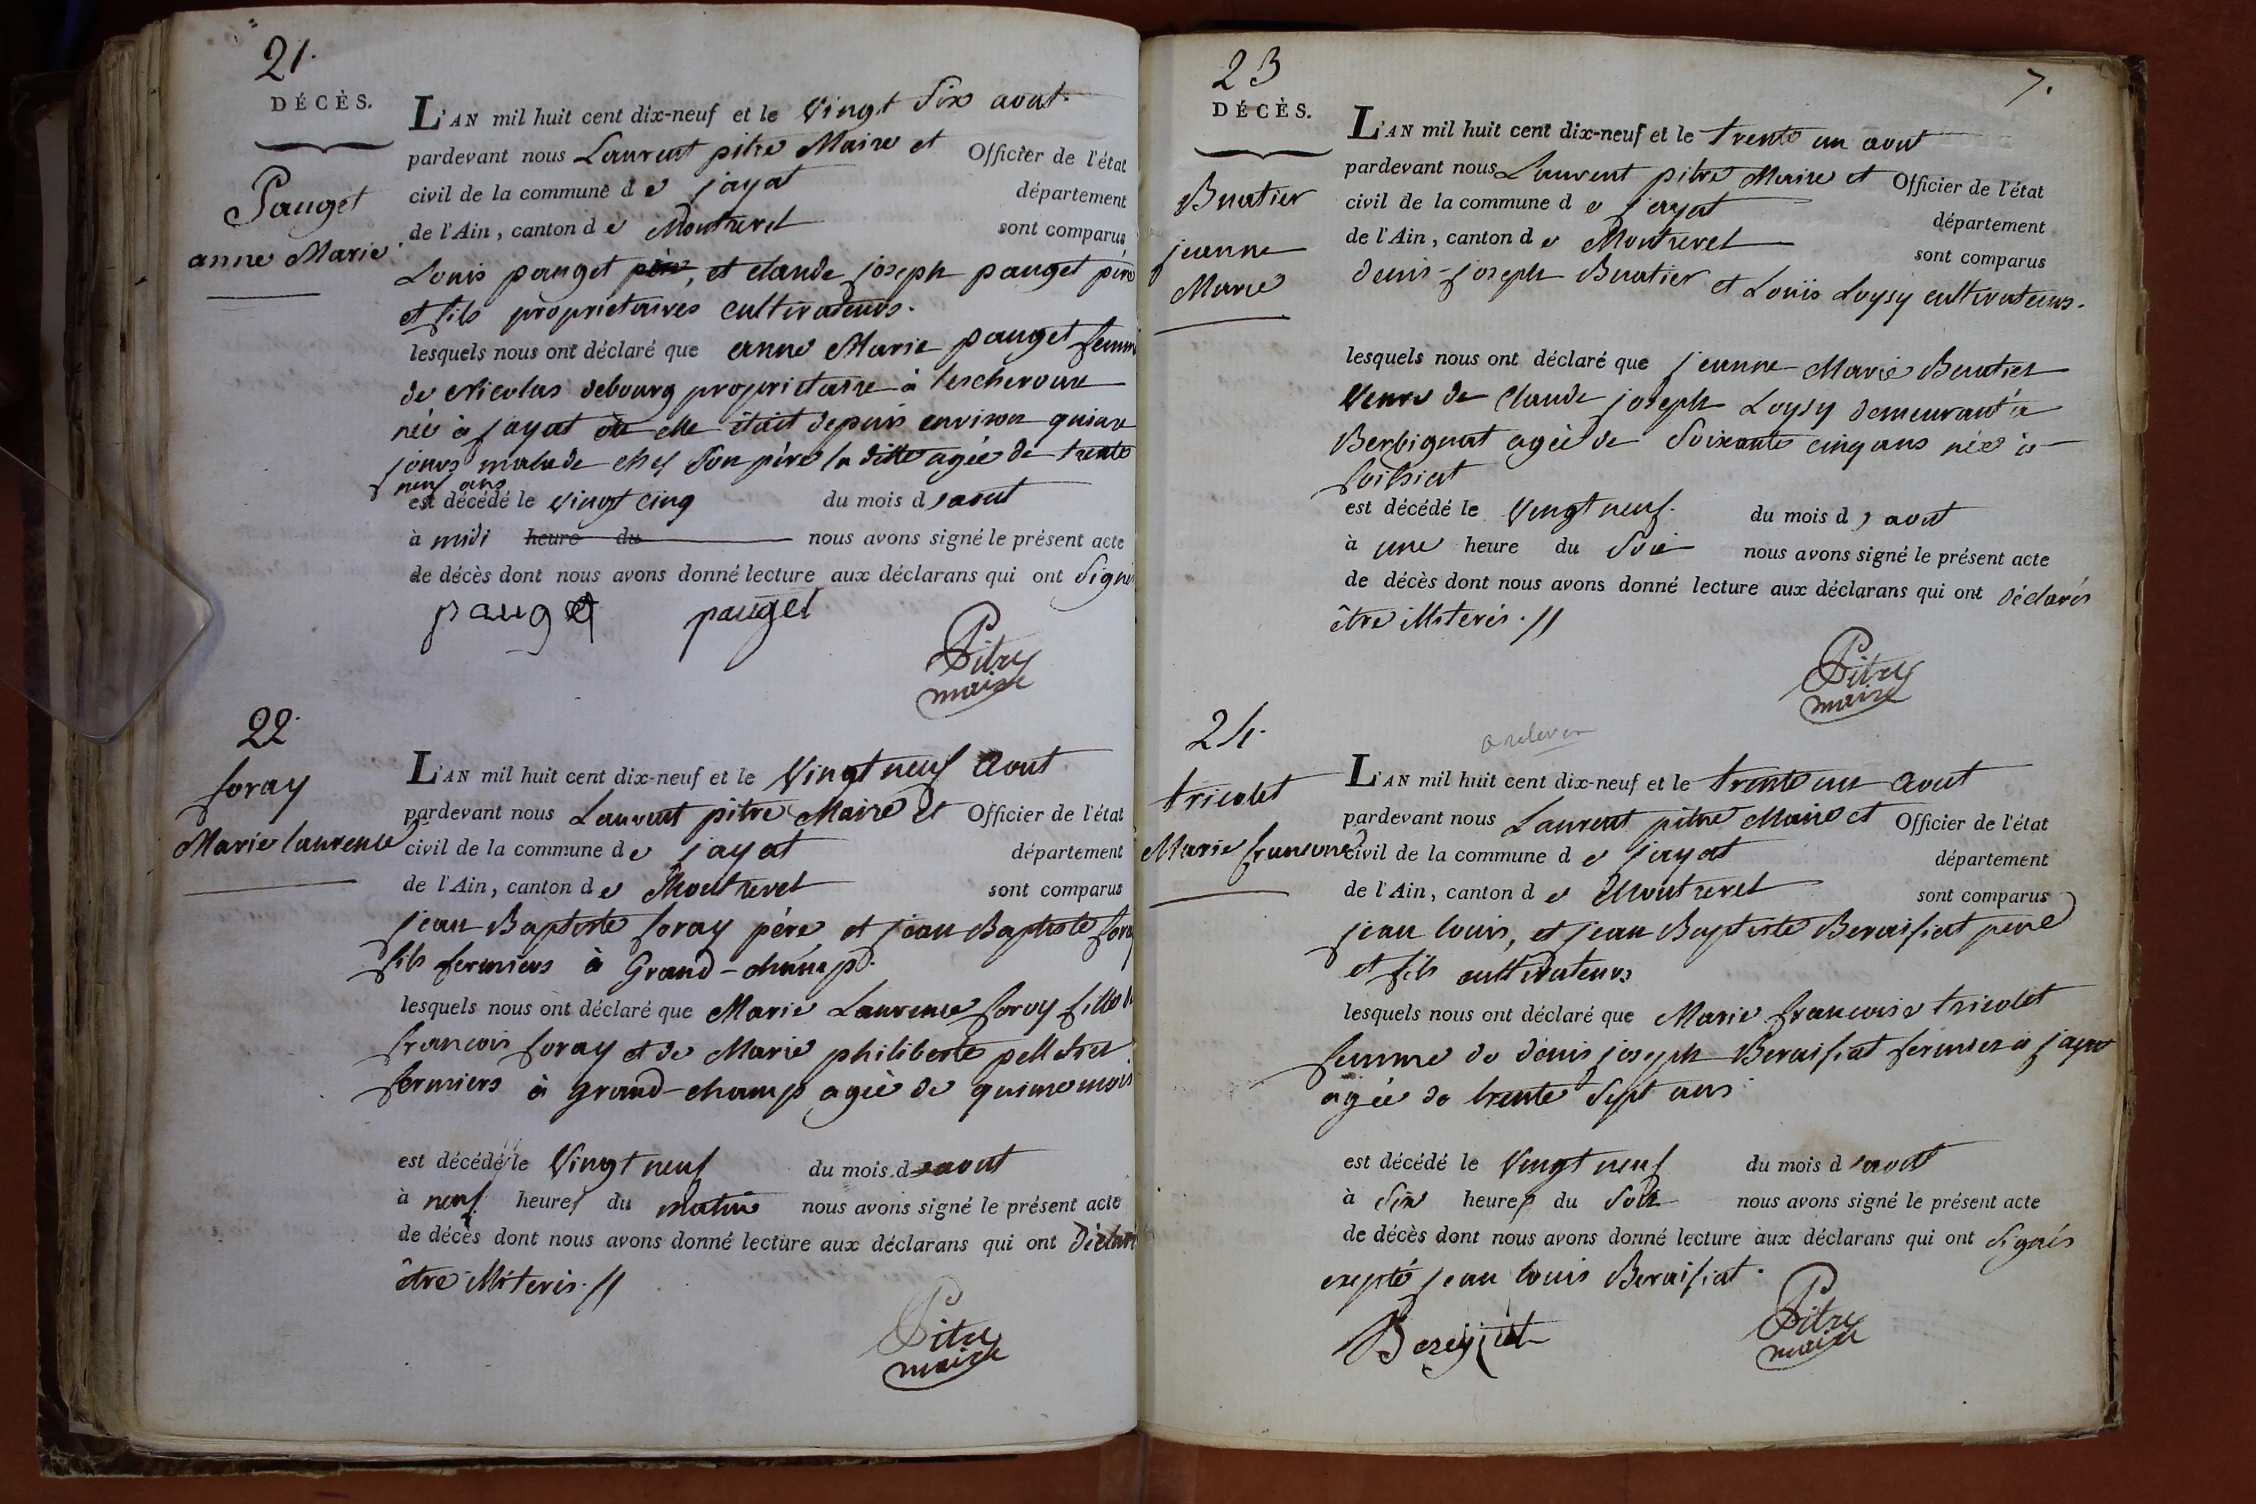 21.
DÉCÈS.
Pauget
anne Marie
L'AN mil huit cent dix-neuf et le Vingt Six aout.
pardevant nous Laurent pitre Maire et Officier de l'état
civil de la commune de jayat département
de l'Ain, canton de Montrevel sont comparus
Louis pauget père, et claude joseph pauget père
et fils propriétaires cultivateurs.
lesquels nous ont déclaré que anne Marie pauget femme
de Nicolas debourg propriétaire à lescheroux
née à jayat où elle était depuis environ quinze
jours malade chez son père la ditte agée de trente
neuf ans
est décédé le vingt cinq du mois d aout
à midi heure du nous avons signé le présent acte
de décès dont nous avons donné lecture aux déclarans qui ont signé
pauget pauget
Pitre
maire
22.
foray
Marie laurence
L'AN mil huit cent dix-neuf et le Vingt neuf Aout
pardevant nous Laurent pitre Maire et Officier de l'état
civil de la commune de jayat département
de l'Ain, canton de Montrevel sont comparus
jean Baptiste foray père et jean Baptiste foray
fils fermiers à Grand-champ.
lesquels nous ont déclaré que Marie Laurence foray fille de
françois foray et de Marie philiberte pelletier
fermiers à grand-champ agée de quinze mois
est décédé le Vingt neuf du mois d aout
à neuf heures du matin nous avons signé le présent acte
de décès dont nous avons donné lecture aux déclarans qui ont déclaré
être illiterés. //
Pitre
maire
23
7.
DÉCÈS.
Buatier
jeanne
Marie
L'AN mil huit cent dix-neuf et le trente un aout
pardevant nous Laurent pitre Maire et Officier de l'état
civil de la commune de jayat département
de l'Ain, canton de Montrevel sont comparus
denis-joseph Buatier et Louis Loysy cultivateurs.
lesquels nous ont déclaré que jeanne Marie Buatier
Veuve de Claude joseph Loysy demeurant à
Berbignat agée de soixante cinq ans née à
foissiat
est décédé le Vingt neuf. du mois d aout
à une heure du soir nous avons signé le présent acte
de décès dont nous avons donné lecture aux déclarans qui ont déclarés
être illiterés. //
Pitre
maire
24.
a relever
tricolet
Marie françoise
L'AN mil huit cent dix-neuf et le trente un Aout
pardevant nous Laurent pitre Maire et Officier de l'état
civil de la commune de jayat département
de l'Ain, canton de Montrevel sont comparus
jean louis, et jean Baptiste Beraisiat père
et fils cultivateurs
lesquels nous ont déclaré que Marie françoise tricolet
femme de denis joseph Beraisiat fermier à jayat
agée de trente sept ans
est décédé le Vingt neuf du mois d aout
à six heures du soir nous avons signé le présent acte
de décès dont nous avons donné lecture aux déclarans qui ont signés
excepté jean louis Beraisiat.
Bereyziat
Pitre
maire